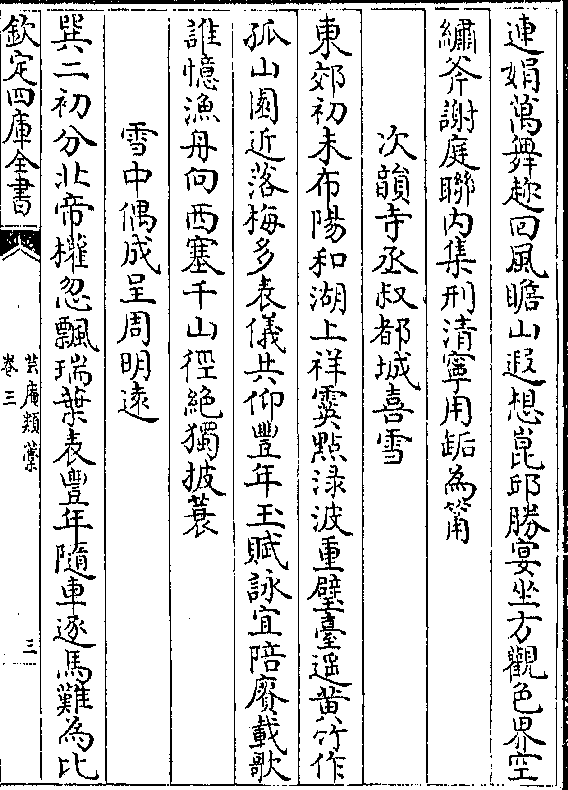 連娟萬舞趂回風瞻山遐想崑邱勝宴坐方觀色界空
繡斧謝庭聯内集刑清寧用垢為筩
次韻寺丞叔都城喜雪
東郊初未布陽和湖上祥霙點渌波重璧臺遥黄竹作
孤山園近落梅多表儀共仰豐年玉賦詠宜陪賡載歌
誰憶漁舟向西塞千山徑絶獨披蓑
雪中偶成呈周明逺
巽二初分北帝權忽飄瑞葉表豐年隨車逐馬難為比
欽定四庫全書
芸庵類藁
卷三
三